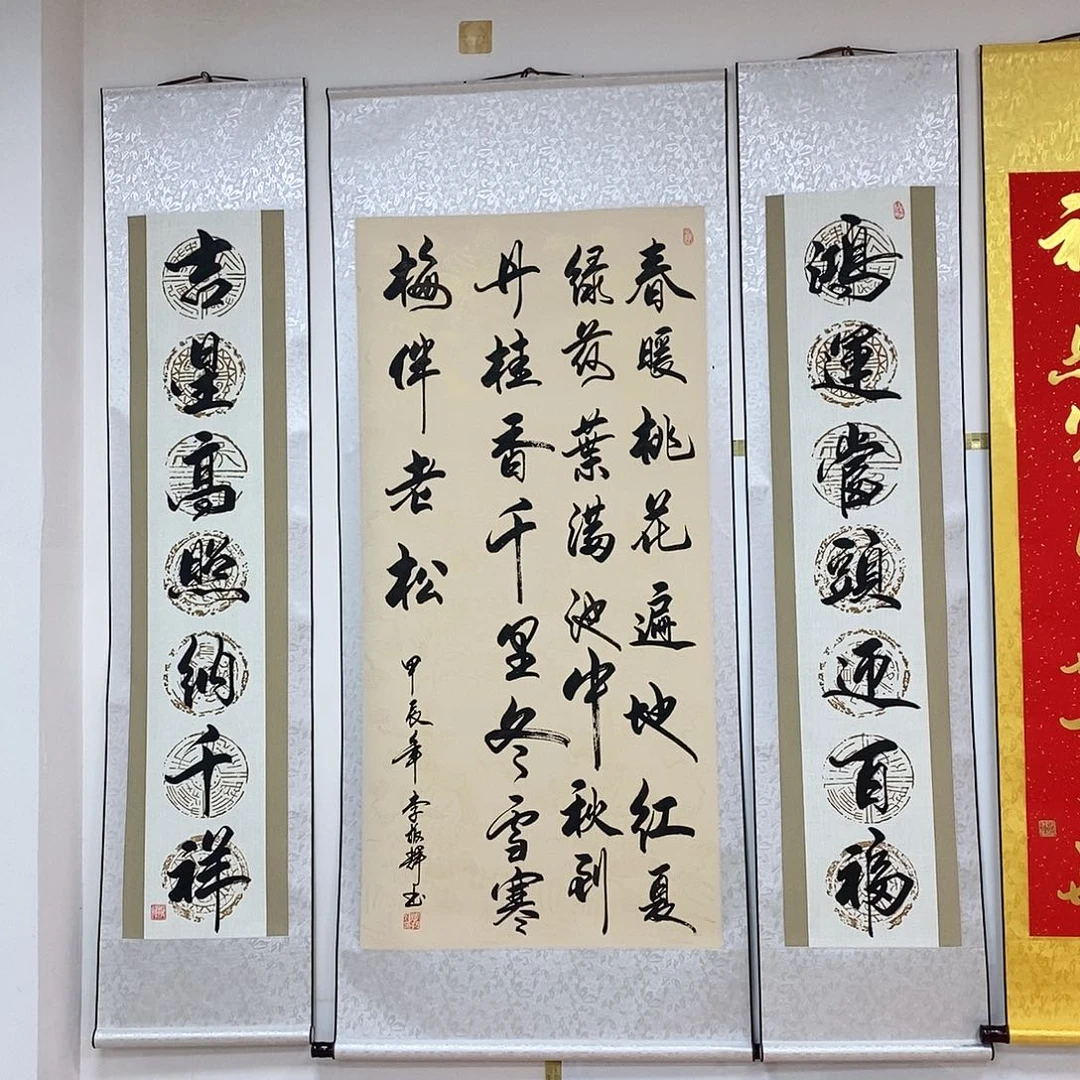 鴻運當頭迎百福
春暖桃花遍地红夏
绿荷葉满池中秋到
丹桂香千里冬雪寒
梅伴老松
甲辰年李振輝书
吉星高照纳千祥